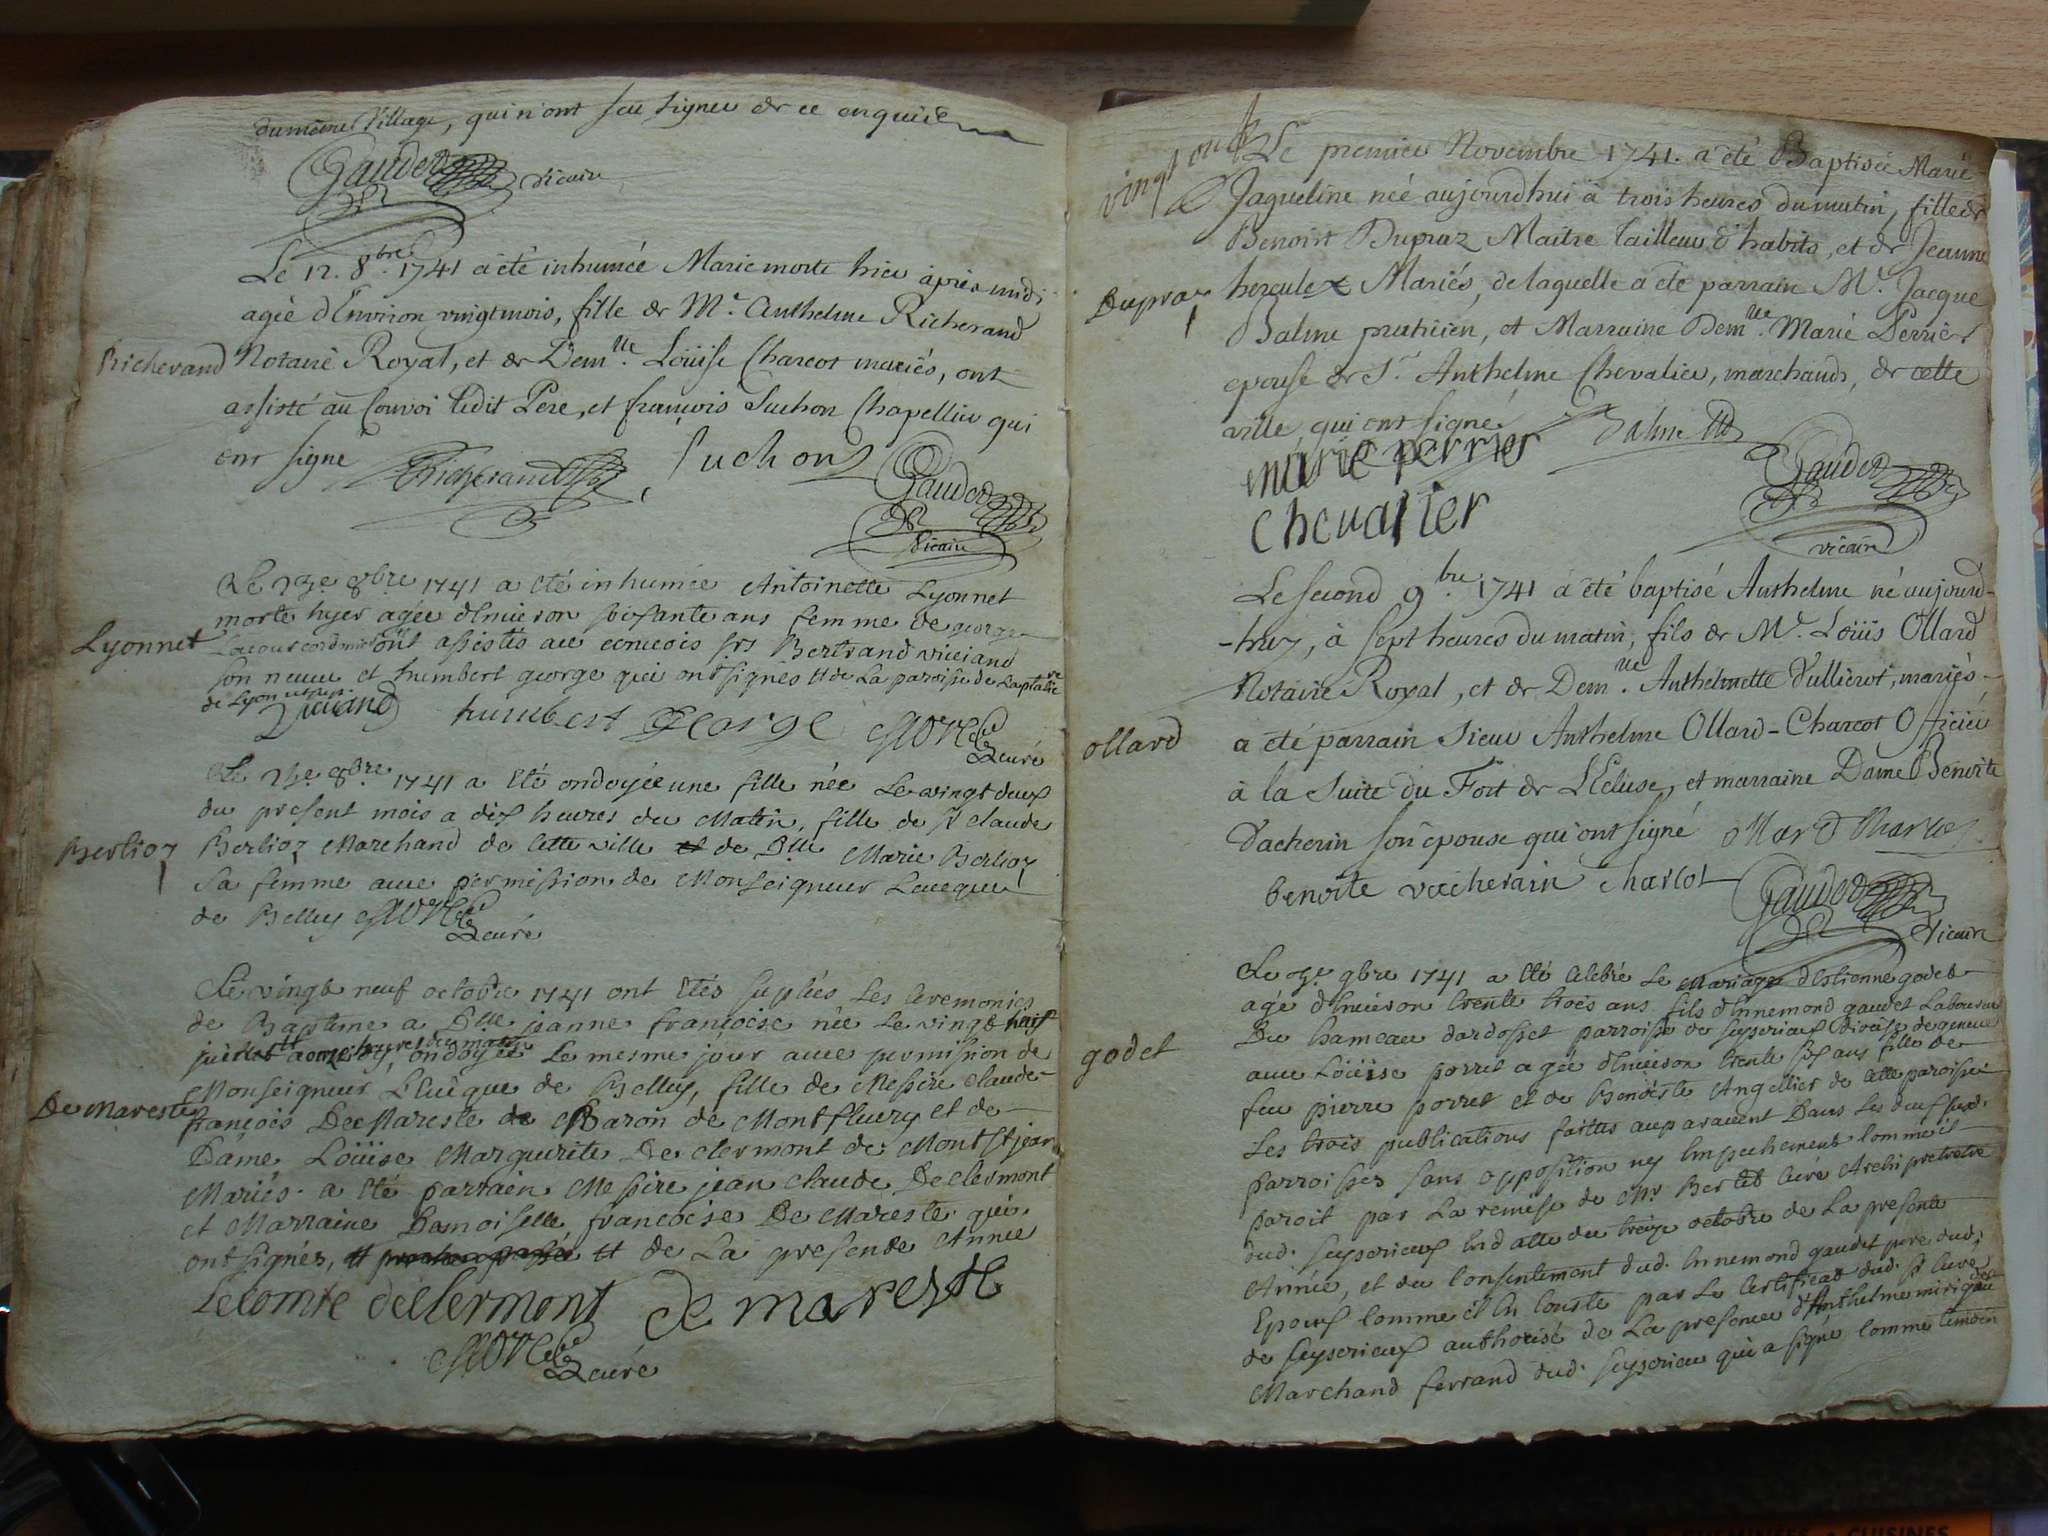 du même Village, qui n'ont seu signer de ce enquis
Gaudet vicaire
Le 12. 8bre 1741 a été inhumée Marie morte hier après midi
agée d'Environ vingt mois, fille de Mr. Anthelme Richerand
Richerand
Notaire Royal, et de Demlle Loüise Charcot mariés, ont
assisté au Convoi ledit Pere, et françois Suchon Chapellier qui
ont signé
Richerand Suchon
Gaudet
Vicaire
Le 8bre 1741 a été inhumée Antoinette Lyonnet
morte hyer agée d'Enuiron soisante ans femme de george
Lyonnet
ont assistés au conuois srs Bertrand viuiand
son neueu et humbert george qui ont signés de La paroisse de
de Lyon
Viuiand humbert George
curé
Le 8bre 1741 a été ondoyée une fille née Le vingt deux
du present mois a dix heures du Matin, fille de sr claude
Berlioz
Berlioz Marchand de cette ville et de Dlle Marie Berlioz
sa femme auec permission de Monseigneur Leueque
de Belley
curé
Le vingt neuf octobre 1741 ont étés suplées Les Ceremonies
de Baptême a Dlle jeanne françoise née Le vingt huit
juillet a onze heures du matin, ondoyée Le mesme jour auec permission de
Monseigneur L'Euêque de Belley, fille de Messire claude
De Mareste
françois De Mareste Baron de Montfleury et de
Dame Loüise Marguerite De clermont de Mont St jean
Mariés. a été parrain Messire jean claude De clermont
et Marraine Damoiselle francoise De Mareste qui
ont signés, de La presente Année
Le comte de Clermont de mareste
curé
vingt
Le premier Novembre 1741. a été Baptisée Marie
Jaqueline née aujourdhui à trois heures du matin, fille de
Benoist Dupraz Maître tailleur d'habits, et de Jeanne
Dupraz
hercule Mariés, de laquelle a été parrain Mr. Jacque
Balme praticien, et Marraine Demlle. Marie Perrier
epouse de Sr. Anthelme Chevalier, marchand, de cette
ville qui ont signé
marie perrier Balme
chevalier
Gaudet
vicaire
Le second 9bre 1741 a été baptisé Anthelme né aujourd-
-huy, à sept heures du matin, fils de Mr. Loüis Ollard
Notaire Royal, et de Demlle. Anthelmette Vullierot, mariés
ollard
a été parrain Sieur Anthelme Ollard-Charcot Officier
à la Suite du Fort de L'Ecluse, et marraine Dame Benoite
Vacherin son épouse qui ont signé ollard Charcot
benoite vacherain charcot
Gaudet
vicaire
Le 9bre 1741 a été Celebré Le Mariage d'Estienne godet
agé d'Enuiron trente trois ans fils d'Ennemond gaudet Laboureur
Du hameau dardosset parroisse de seyserieux Diocèse de geneue
godet
auec Loüise porret agée d'Enuiron trente six ans fille de
feu pierre porret et de Benoiste Angellier de cette paroisse
Les trois publications faittes auparauent Dans Les deux susd.
parroisses sans opposition ny Empechement comme il
paroit par La remise de Mr Bertet Curé Archiprêtre
dud. seyserieux En datte du treize octobre de La presente
Année, et du consentement dud. Ennemond gaudet pere dud.
Epoux comme il En conste par Le Certificat dud. sr Curé
de seyserieux authorisé de La presence d'Anthelme
Marchand ferrand dud. seyserieu qui a signé comme temoin